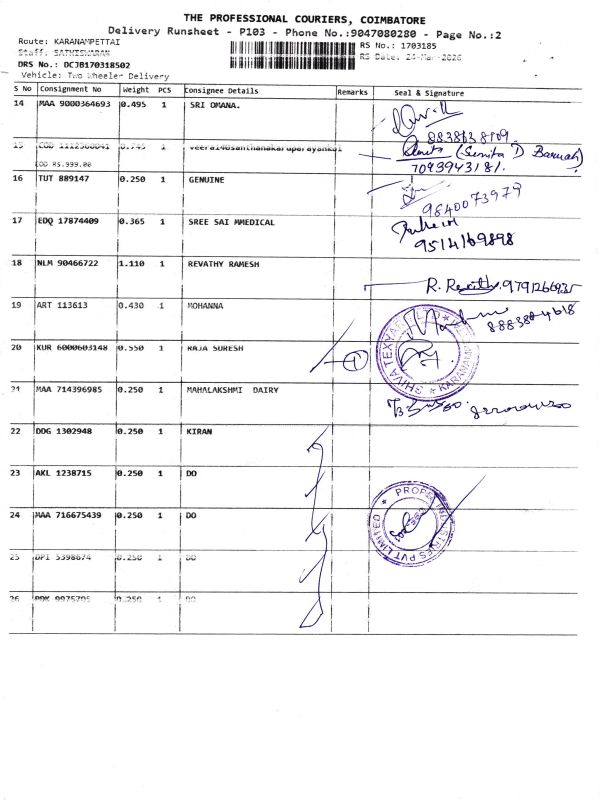 THE PROFESSIONAL COURIERS, COIMBATORE
Delivery Runsheet - P103 - Phone No.:9047080280 - Page No.:2
Route: KARANAMPETTAI
RS No.: 1703185
Staff: SATHISWARAN
RS Date: 24-Mar-2026
DRS No.: DCJB170318502
Vehicle: Two Wheeler Delivery
S No Consignment No Weight PCS Consignee Details Remarks Seal & Signature
14 MAA 9000364693 0.495 1 SRI OMANA.
8838638909
15 COD 0.745 1
(Sunita D Barman)
COD RS.999.00
7093943181.
16 TUT 889147 0.250 1 GENUINE
9840073979
17 EDQ 17874409 0.365 1 SREE SAI MMEDICAL
9514169898
18 NLM 90466722 1.110 1 REVATHY RAMESH
R. Revathy.
19 ART 113613 0.430 1 MOHANNA
SHIVA TEXYARN LTD ★ KARANAMPET ★
20 KUR 6000603148 0.550 1 RAJA SURESH
1
21 MAA 714396985 0.250 1 MAHALAKSHMI DAIRY
22 DDG 1302948 0.250 1 KIRAN
23 AKL 1238715 0.250 1 DO
24 MAA 716675439 0.250 1 DO
PVT LIMITED ★
25 DPI 5398674 0.250 1 DO
26 0.250 1 DO